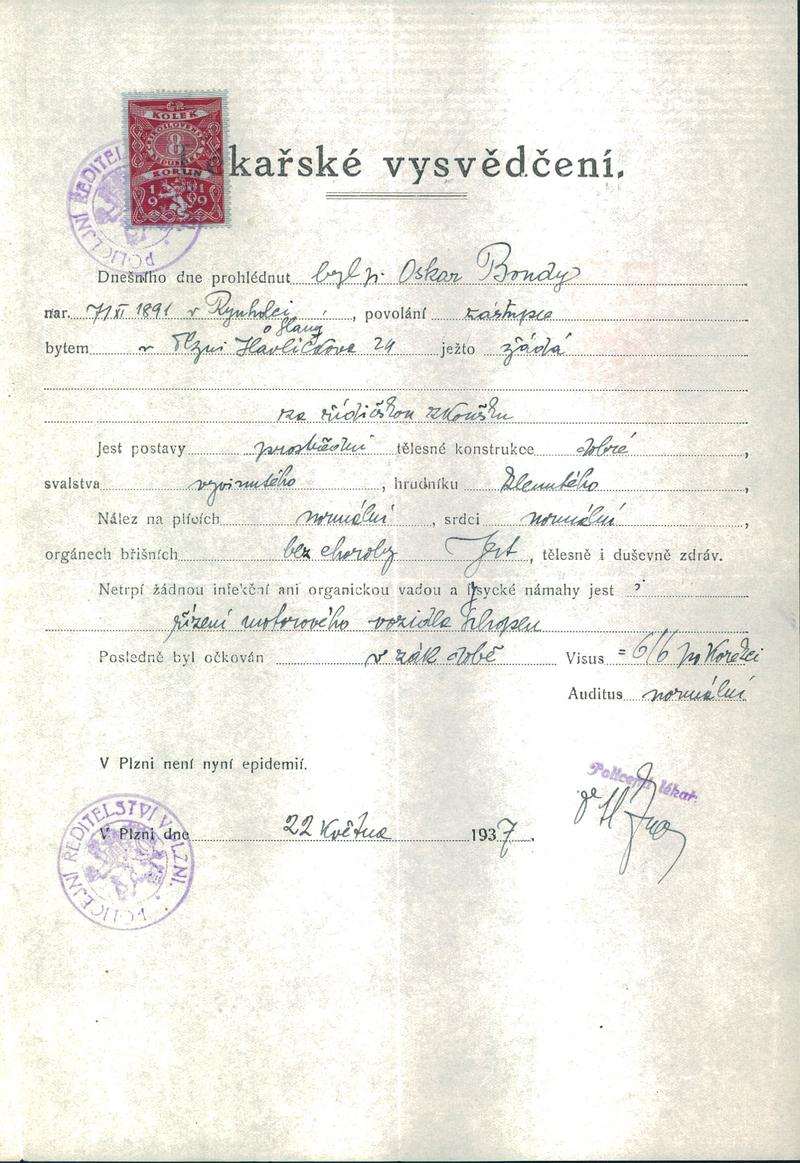 ČR
KOLEK
ČESKOSLOVENSKÝ
8
KORUN
1919
POLICEJNÍ ŘEDITEL
kařské vysvědčení.
Dnešního dne prohlédnut byl p. Oskar Bondy
nar. 7/XI 1891 v Rynholci, povolání zástupce
o Slaný
bytem v Plzni Havlíčkova 24 ježto žádá
za řidičskou zkoušku
Jest postavy prostřední tělesné konstrukce dobré,
svalstva vyvinutého, hrudníku klenutého,
Nález na plicích normální, srdci normální,
orgánech břišních bez choroby Jest, tělesně i duševně zdráv.
Netrpí žádnou infekční ani organickou vadou a fysycké námahy jest
řízení motorového vozidla schopen
Posledně byl očkován v zák době Visus = 6/6 po korekci
Auditus normální
V Plzni není nyní epidemií.
Policejní lékař:
V Plzni dne 22 Května 1937.
POLICEJNÍ ŘEDITELSTVÍ V PLZNI.